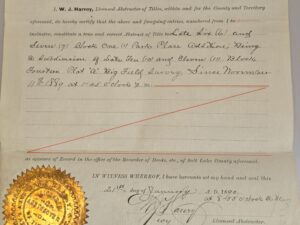 I, W. J. Harvey, Licensed Abstractor of Titles, within and for the County and Territory
aforesaid, do hereby certify that the above and foregoing entries, numbered from 1 to
inclusive, constitute a true and correct Abstract of Title to Lots Six (6) and
Seven (7) Block One (1) Park Place Addition, being
a Subdivision of Lots Ten (10) and Eleven (11) Block
Fourteen Plat "A" Big Field Survey, Since November
11th 1889 at o'clock P.M.
as appears of Record in the office of the Recorder of Deeds, etc., of Salt Lake County aforesaid.
IN WITNESS WHEREOF, I have hereunto set my hand and seal this
21st day of January A.D. 1890.
at o'clock A.M.
W J Harvey
Licensed Abstractor.